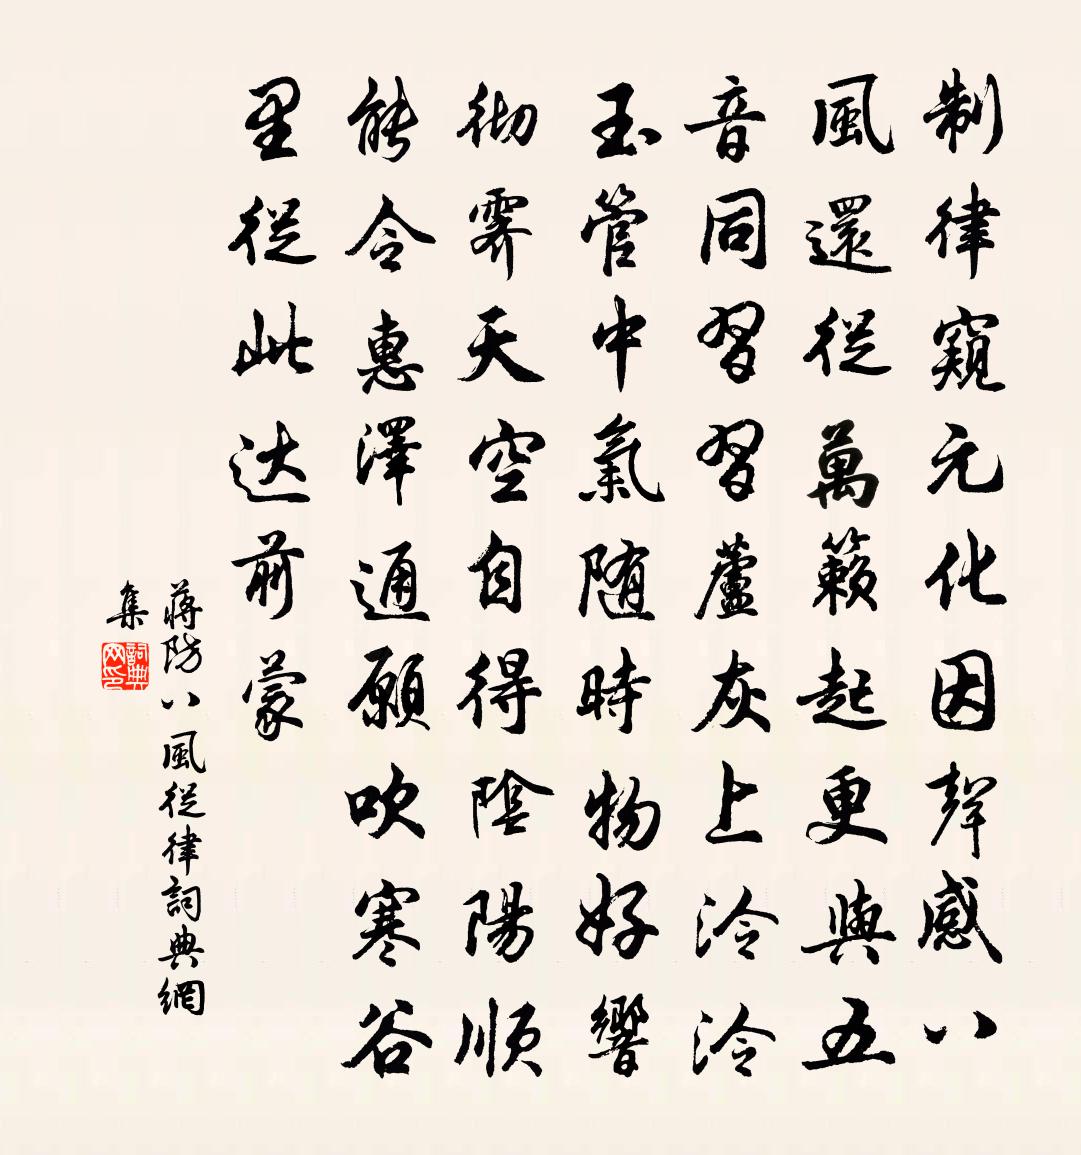 制律窺元化因聲感八
風還從萬籟起更與五
音同習習蘆灰上泠泠
玉管中氣随時物好響
彻霽天空自得陰陽順
能令惠澤通願吹寒谷
里從此达前蒙
蔣防八風從律詞典網
集
詞典
网印